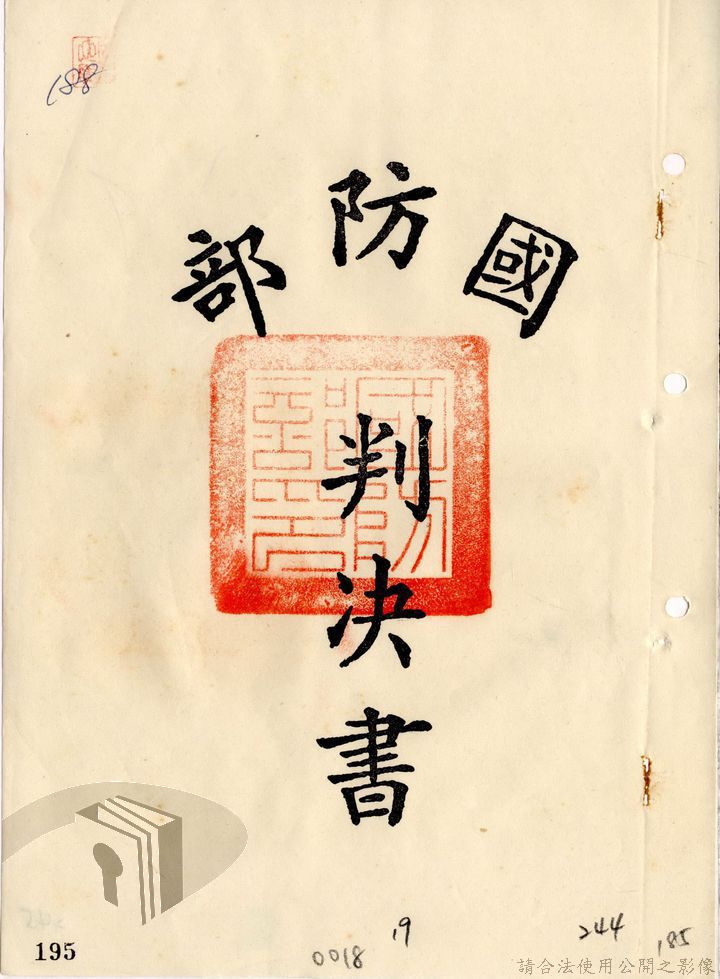 188
國防部
國防部印
判決書
19
244
185
0018
195
請合法使用公開之影像